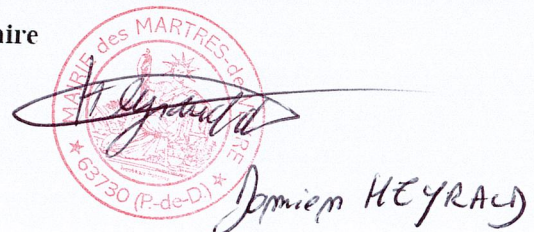 aire
MAIRIE des MARTRES-de-
63730 (P.-de-D.)
Damien HEYRAUD